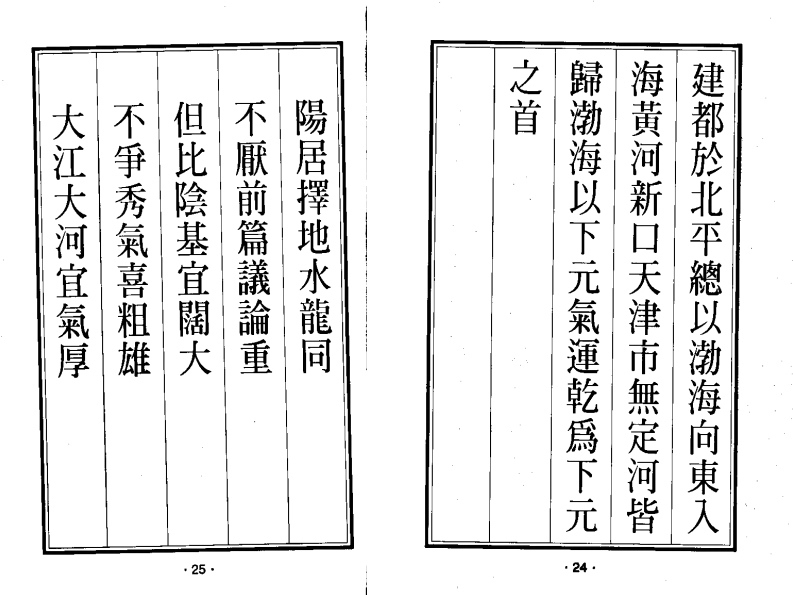 建都於北平總以渤海向東入
海黃河新口天津市無定河皆
歸渤海以下元氣運乾爲下元
之首
·24·
陽居擇地水龍同
不厭前篇議論重
但比陰基宜闊大
不爭秀氣喜粗雄
大江大河宜氣厚
·25·